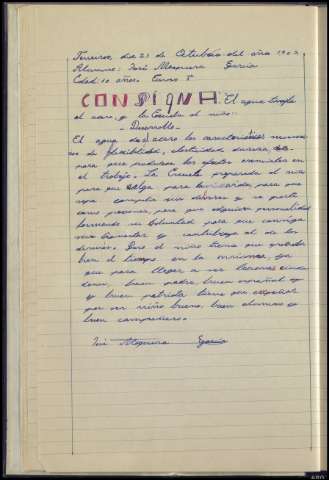 Teverga, día 21 de Octubre del año 19
Alumno: José Mosquera García
Edad: 10 años. Curso 5º
CONSIGNA: El agua templa
el acero, y la Escuela al niño.
- Desarrollo -
El agua da al acero las características
de flexibilidad, elasticidad, dureza, etc.
para que produzca los efectos esenciales en
el trabajo. La Escuela prepara al niño
para que salga para la vida, para que
cumpla sus deberes y se porte
como persona, para que adquiera personalidad
formando su Voluntad para que consiga
sus bienestar y contribuya al de los
demás. Pero el niño tiene que aprobechar
bien el tiempo en la misma, ya
que para llegar a ser buenos ciuda
danos, buen padre, buen español y
y buen patriota tiene que empezar
por ser niño bueno, buen alumno y
buen compañero.
José Mosquera García